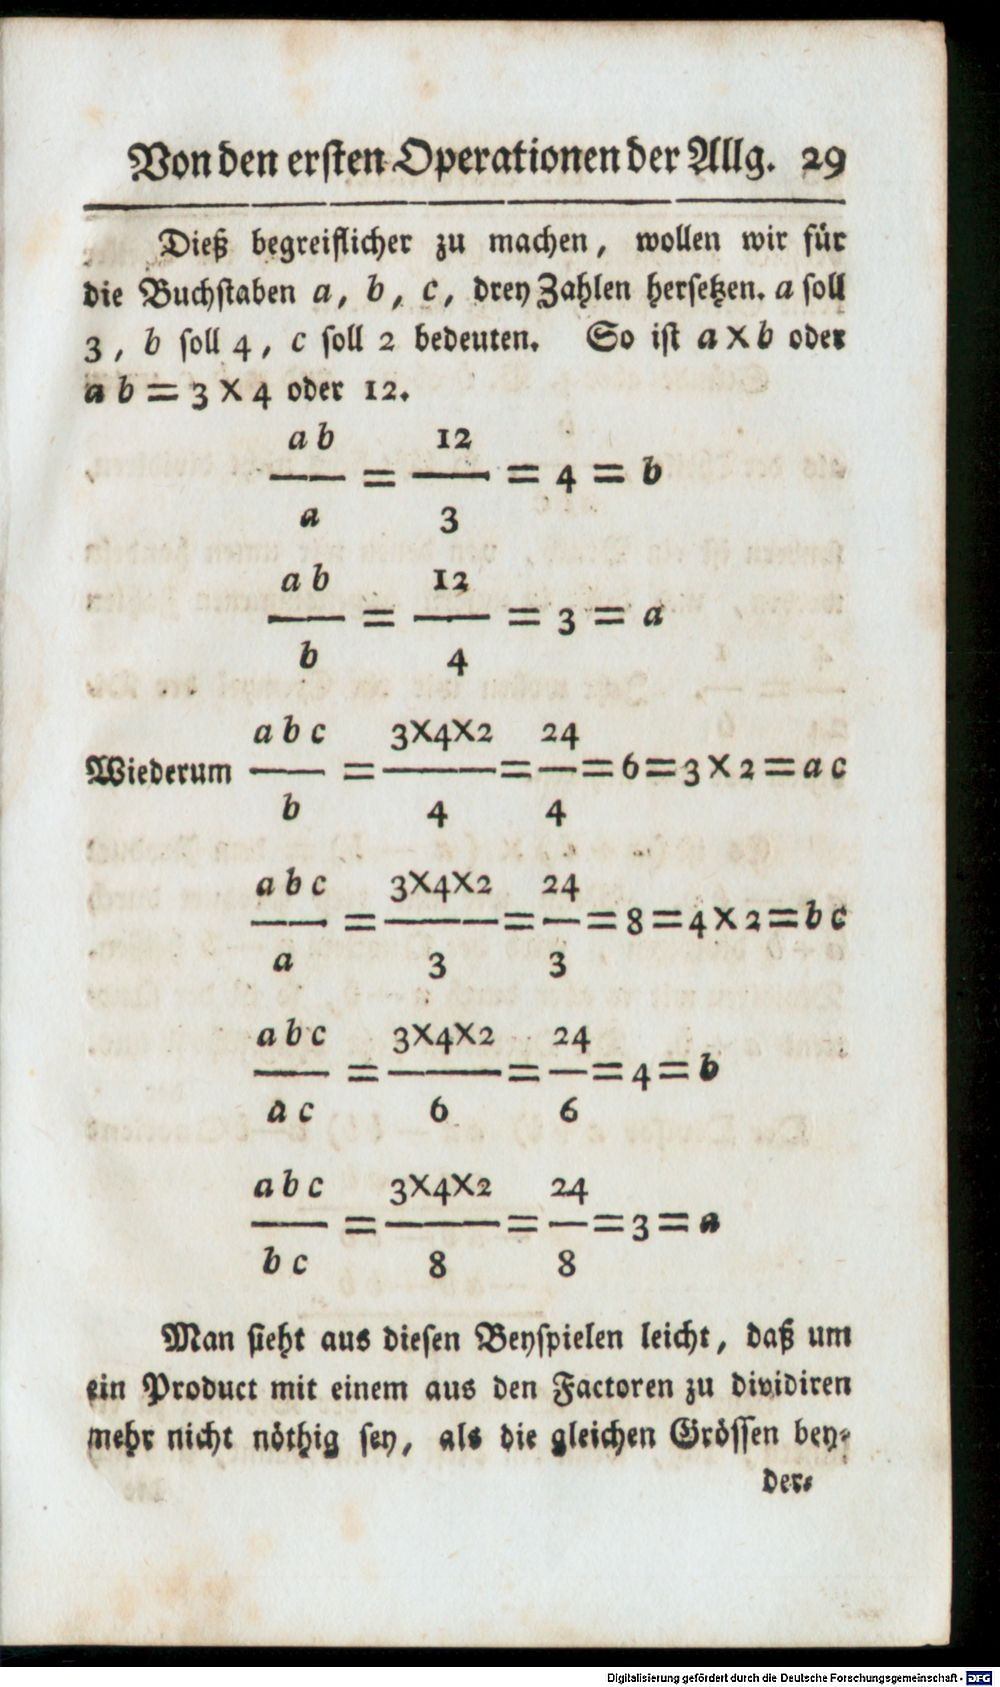 Von den ersten Operationen der Allg. 29
Dieß begreiflicher zu machen, wollen wir für
die Buchstaben a, b, c, drey Zahlen hersetzen. a soll
3, b soll 4, c soll 2 bedeuten. So ist a × b oder
a b = 3 × 4 oder 12.
a b 12
— = — = 4 = b
a 3
a b 12
— = — = 3 = a
b 4
a b c 3×4×2 24
Wiederum — = — = — = 6 = 3 × 2 = a c
b 4 4
a b c 3×4×2 24
— = — = — = 8 = 4 × 2 = b c
a 3 3
a b c 3×4×2 24
— = — = — = 4 = b
a c 6 6
a b c 3×4×2 24
— = — = — = 3 = a
b c 8 8
Man sieht aus diesen Beyspielen leicht, daß um
ein Product mit einem aus den Factoren zu dividiren
mehr nicht nöthig sey, als die gleichen Grössen bey-
der-
Digitalisierung gefördert durch die Deutsche Forschungsgemeinschaft - DFG